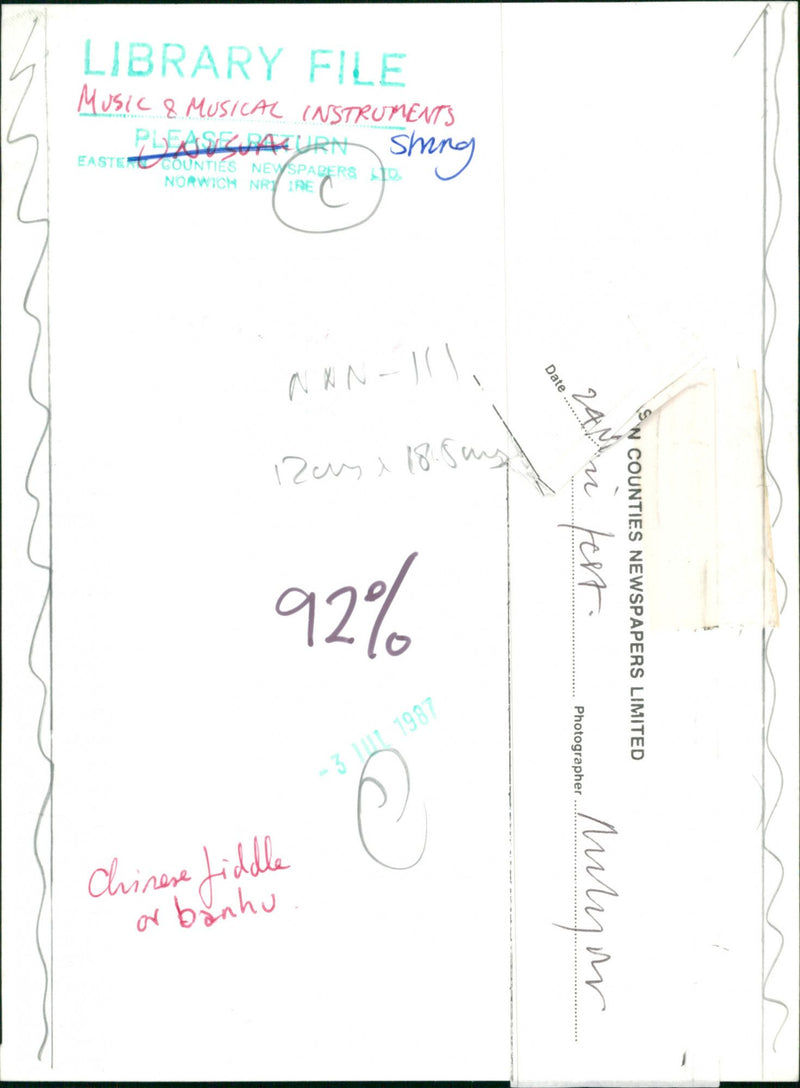 LIBRARY FILE
MUSIC & MUSICAL INSTRUMENTS
PLEASE RETURN
UNUSUAL String
EASTERN COUNTIES NEWSPAPERS LTD.
NORWICH NR1 1RE
C
NNN-111
12cms x 18.5cms
92%
-3 JUL 1987
Chinese fiddle
or banhu
Date 24
fest.
N COUNTIES NEWSPAPERS LIMITED
Photographer